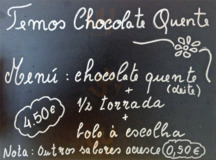 Temos Chocolate Quente
Menú: chocolate quente
(leite)
+
4,50€
1/2 torrada
+
bolo à escolha
Nota: Outros sabores acresce 0,50€